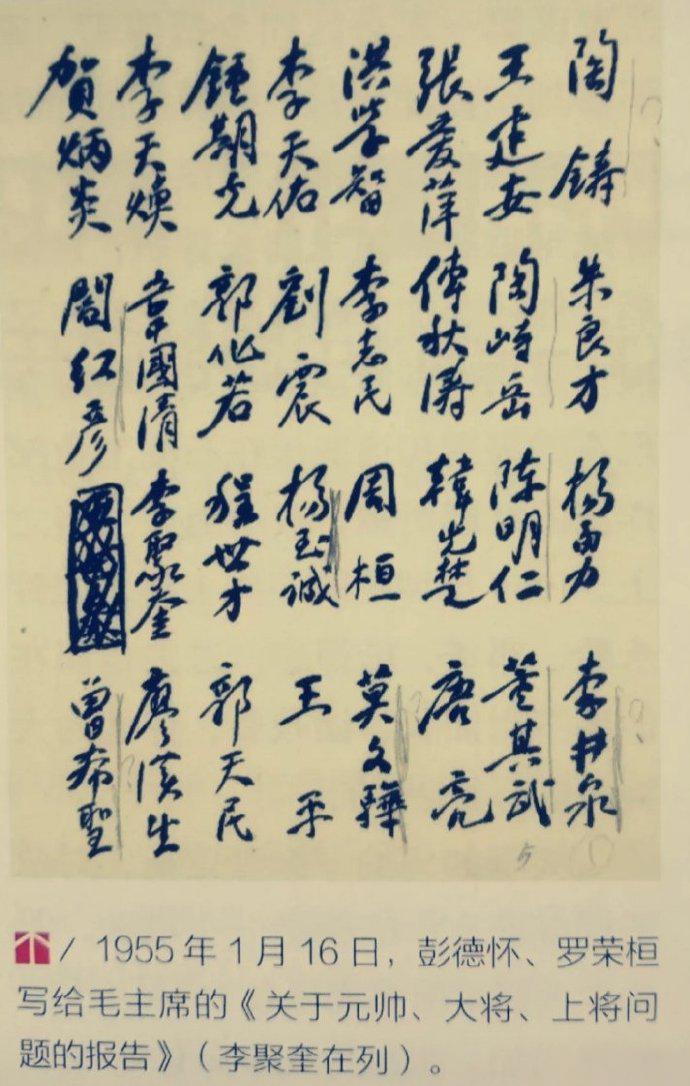 陶鑄 朱良才 楊勇 李井泉
王建安 陶峙岳 陈明仁 董其武
張愛萍 傅秋濤 韓先楚 唐亮
洪学智 李志民 周桓 莫文驊
李天佑 劉震 楊至誠 王平
鍾期光 郭化若 程世才 郭天民
李天煥 韋國清 李聚奎 廖漢生
賀炳炎 閻红彦 曾希聖
5
/ 1955年1月16日，彭德怀、罗荣桓
写给毛主席的《关于元帅、大将、上将问
题的报告》（李聚奎在列）。